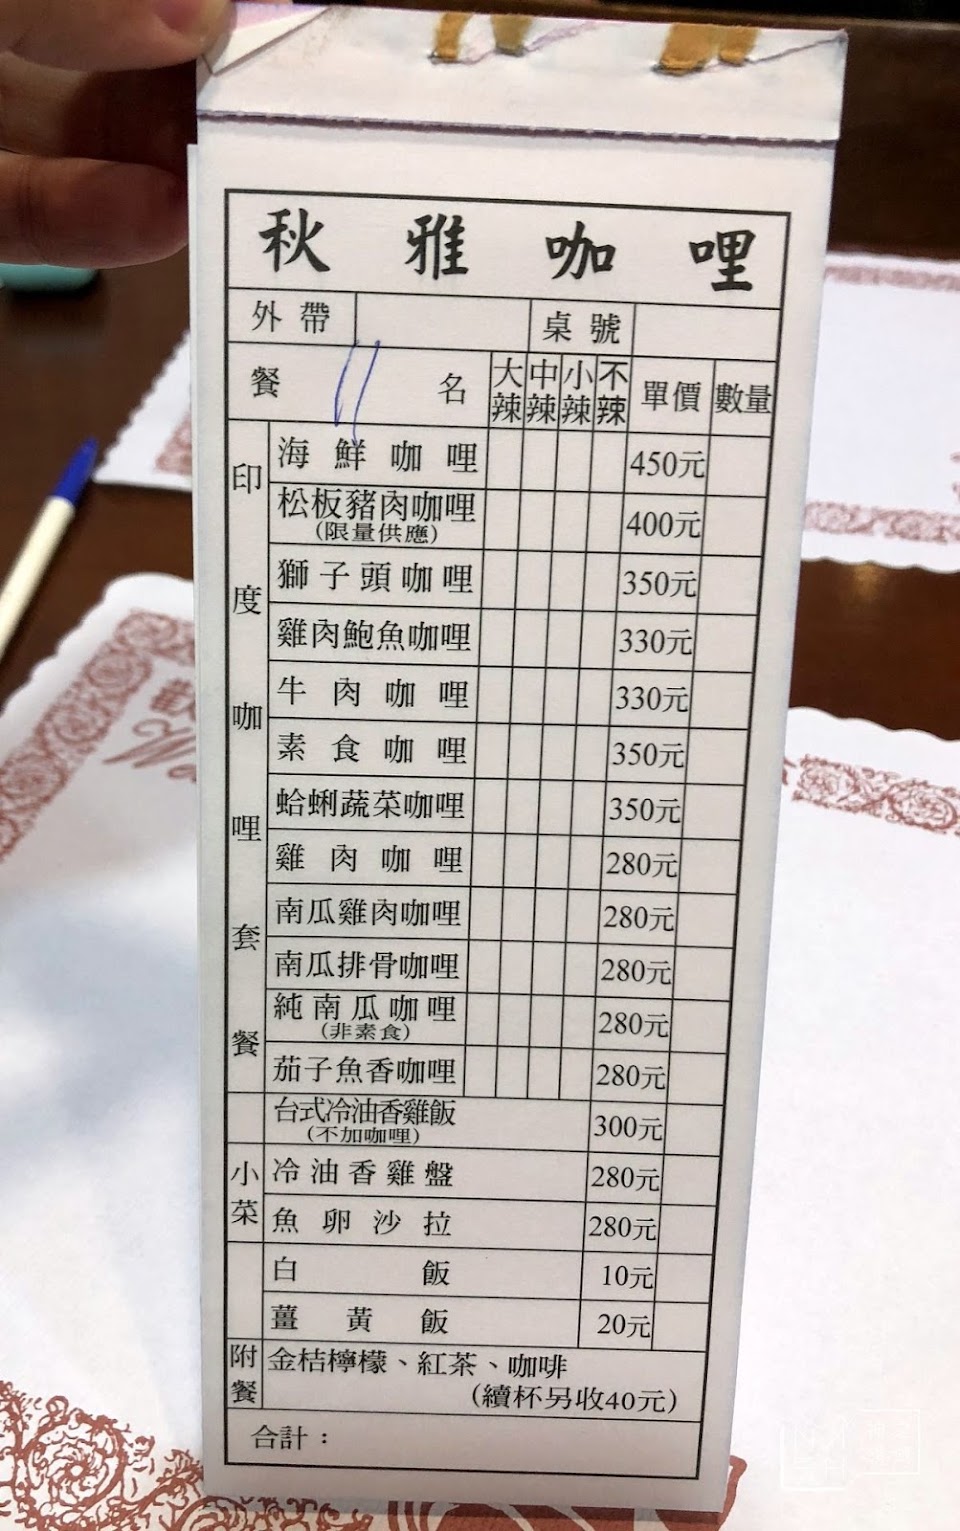 秋雅咖哩
外帶 桌號
餐名 大辣 中辣 小辣 不辣 單價 數量
印度咖哩套餐
海鮮咖哩 450元
松板豬肉咖哩 400元
(限量供應)
獅子頭咖哩 350元
雞肉鮑魚咖哩 330元
牛肉咖哩 330元
素食咖哩 350元
蛤蜊蔬菜咖哩 350元
雞肉咖哩 280元
南瓜雞肉咖哩 280元
南瓜排骨咖哩 280元
純南瓜咖哩 280元
(非素食)
茄子魚香咖哩 280元
台式冷油香雞飯 300元
(不加咖哩)
小菜
冷油香雞盤 280元
魚卵沙拉 280元
白飯 10元
薑黃飯 20元
附餐 金桔檸檬、紅茶、咖啡
(續杯另收40元)
合計：